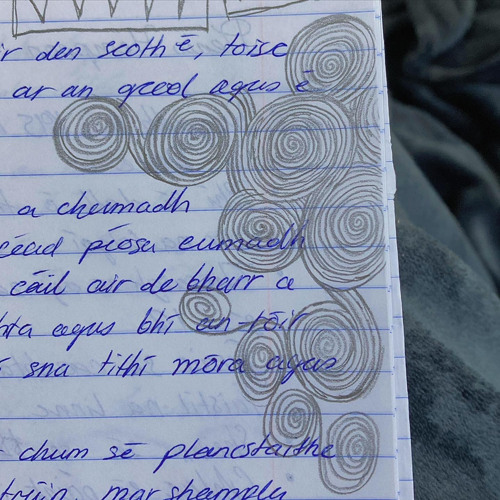 ir den scoth ē, toisc
ar an gceol agus ē
a chumadh
céad píosa cumadh
cáil air de bharr a
hta agus bhī an-tōir
ī sna tithī mōra agus
chum sē plancstaithe
mar shampla